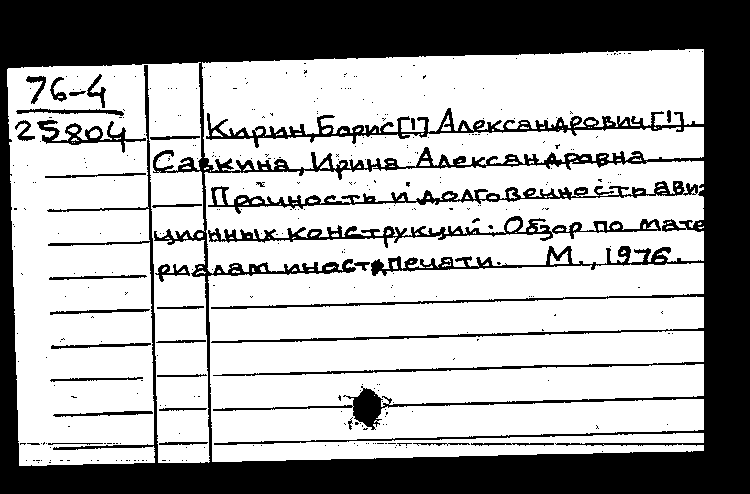 76-4
25804
Кирин, Борис[!] Александрович[!].
Савкина, Ирина Александровна.
Прочность и долговечность авиа
ционных конструкций: Обзор по мате
риалам иност. печати. М., 1976.